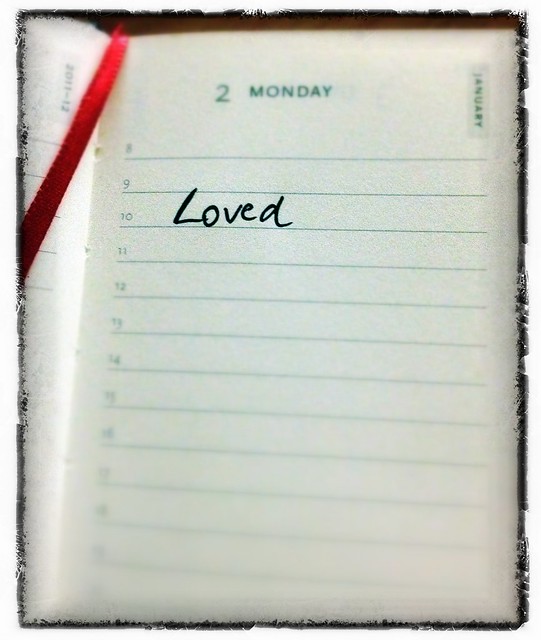 2011-12
2 MONDAY
JANUARY
8
9
Loved
10
11
12
13
14
15
16
17